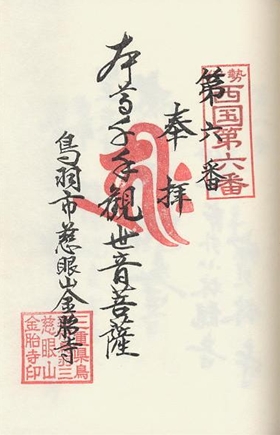 勢
西国第六番
第六番
奉拝
本尊千手觀世音菩薩
鳥羽市慈眼山金胎寺
三重県鳥
慈眼山
金胎寺印